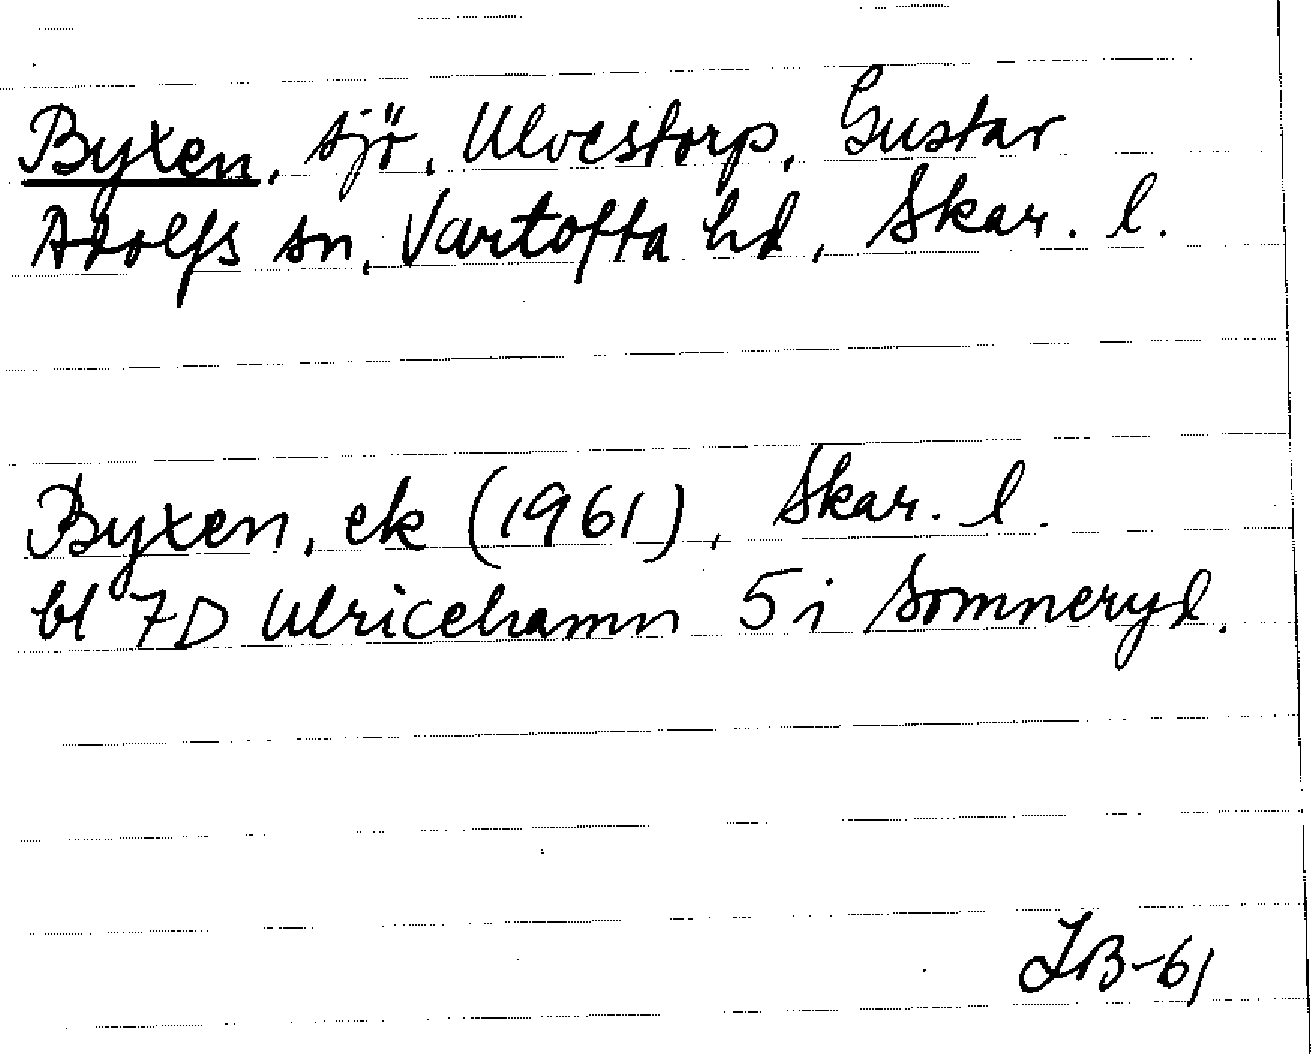 Byxen, sjö, Ulvestorp, Gustav
Adolfs sn, Vartofta hd, Skar. l.
Byxen, ek (1961), Skar. l.
bl 7D Ulricehamn 5i Sömneryd.
IB-61